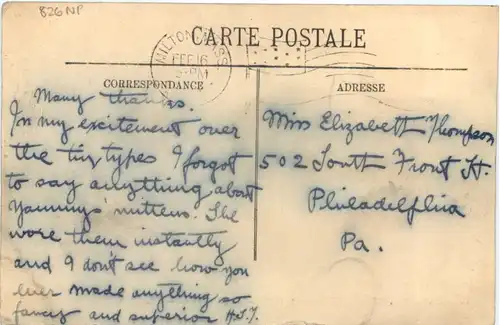 826 NP
CARTE POSTALE
MILTON, MASS
FEB 16
PM
CORRESPONDANCE
ADRESSE
Many thanks.
In my excitement over
the tin types I forgot
to say anything about
mittens. She
wore them instantly
and I don't see how you
ever made anything so
fancy and superior H.S.T.
Miss Elizabeth Thompson
502 South Front St.
Philadelphia
Pa.